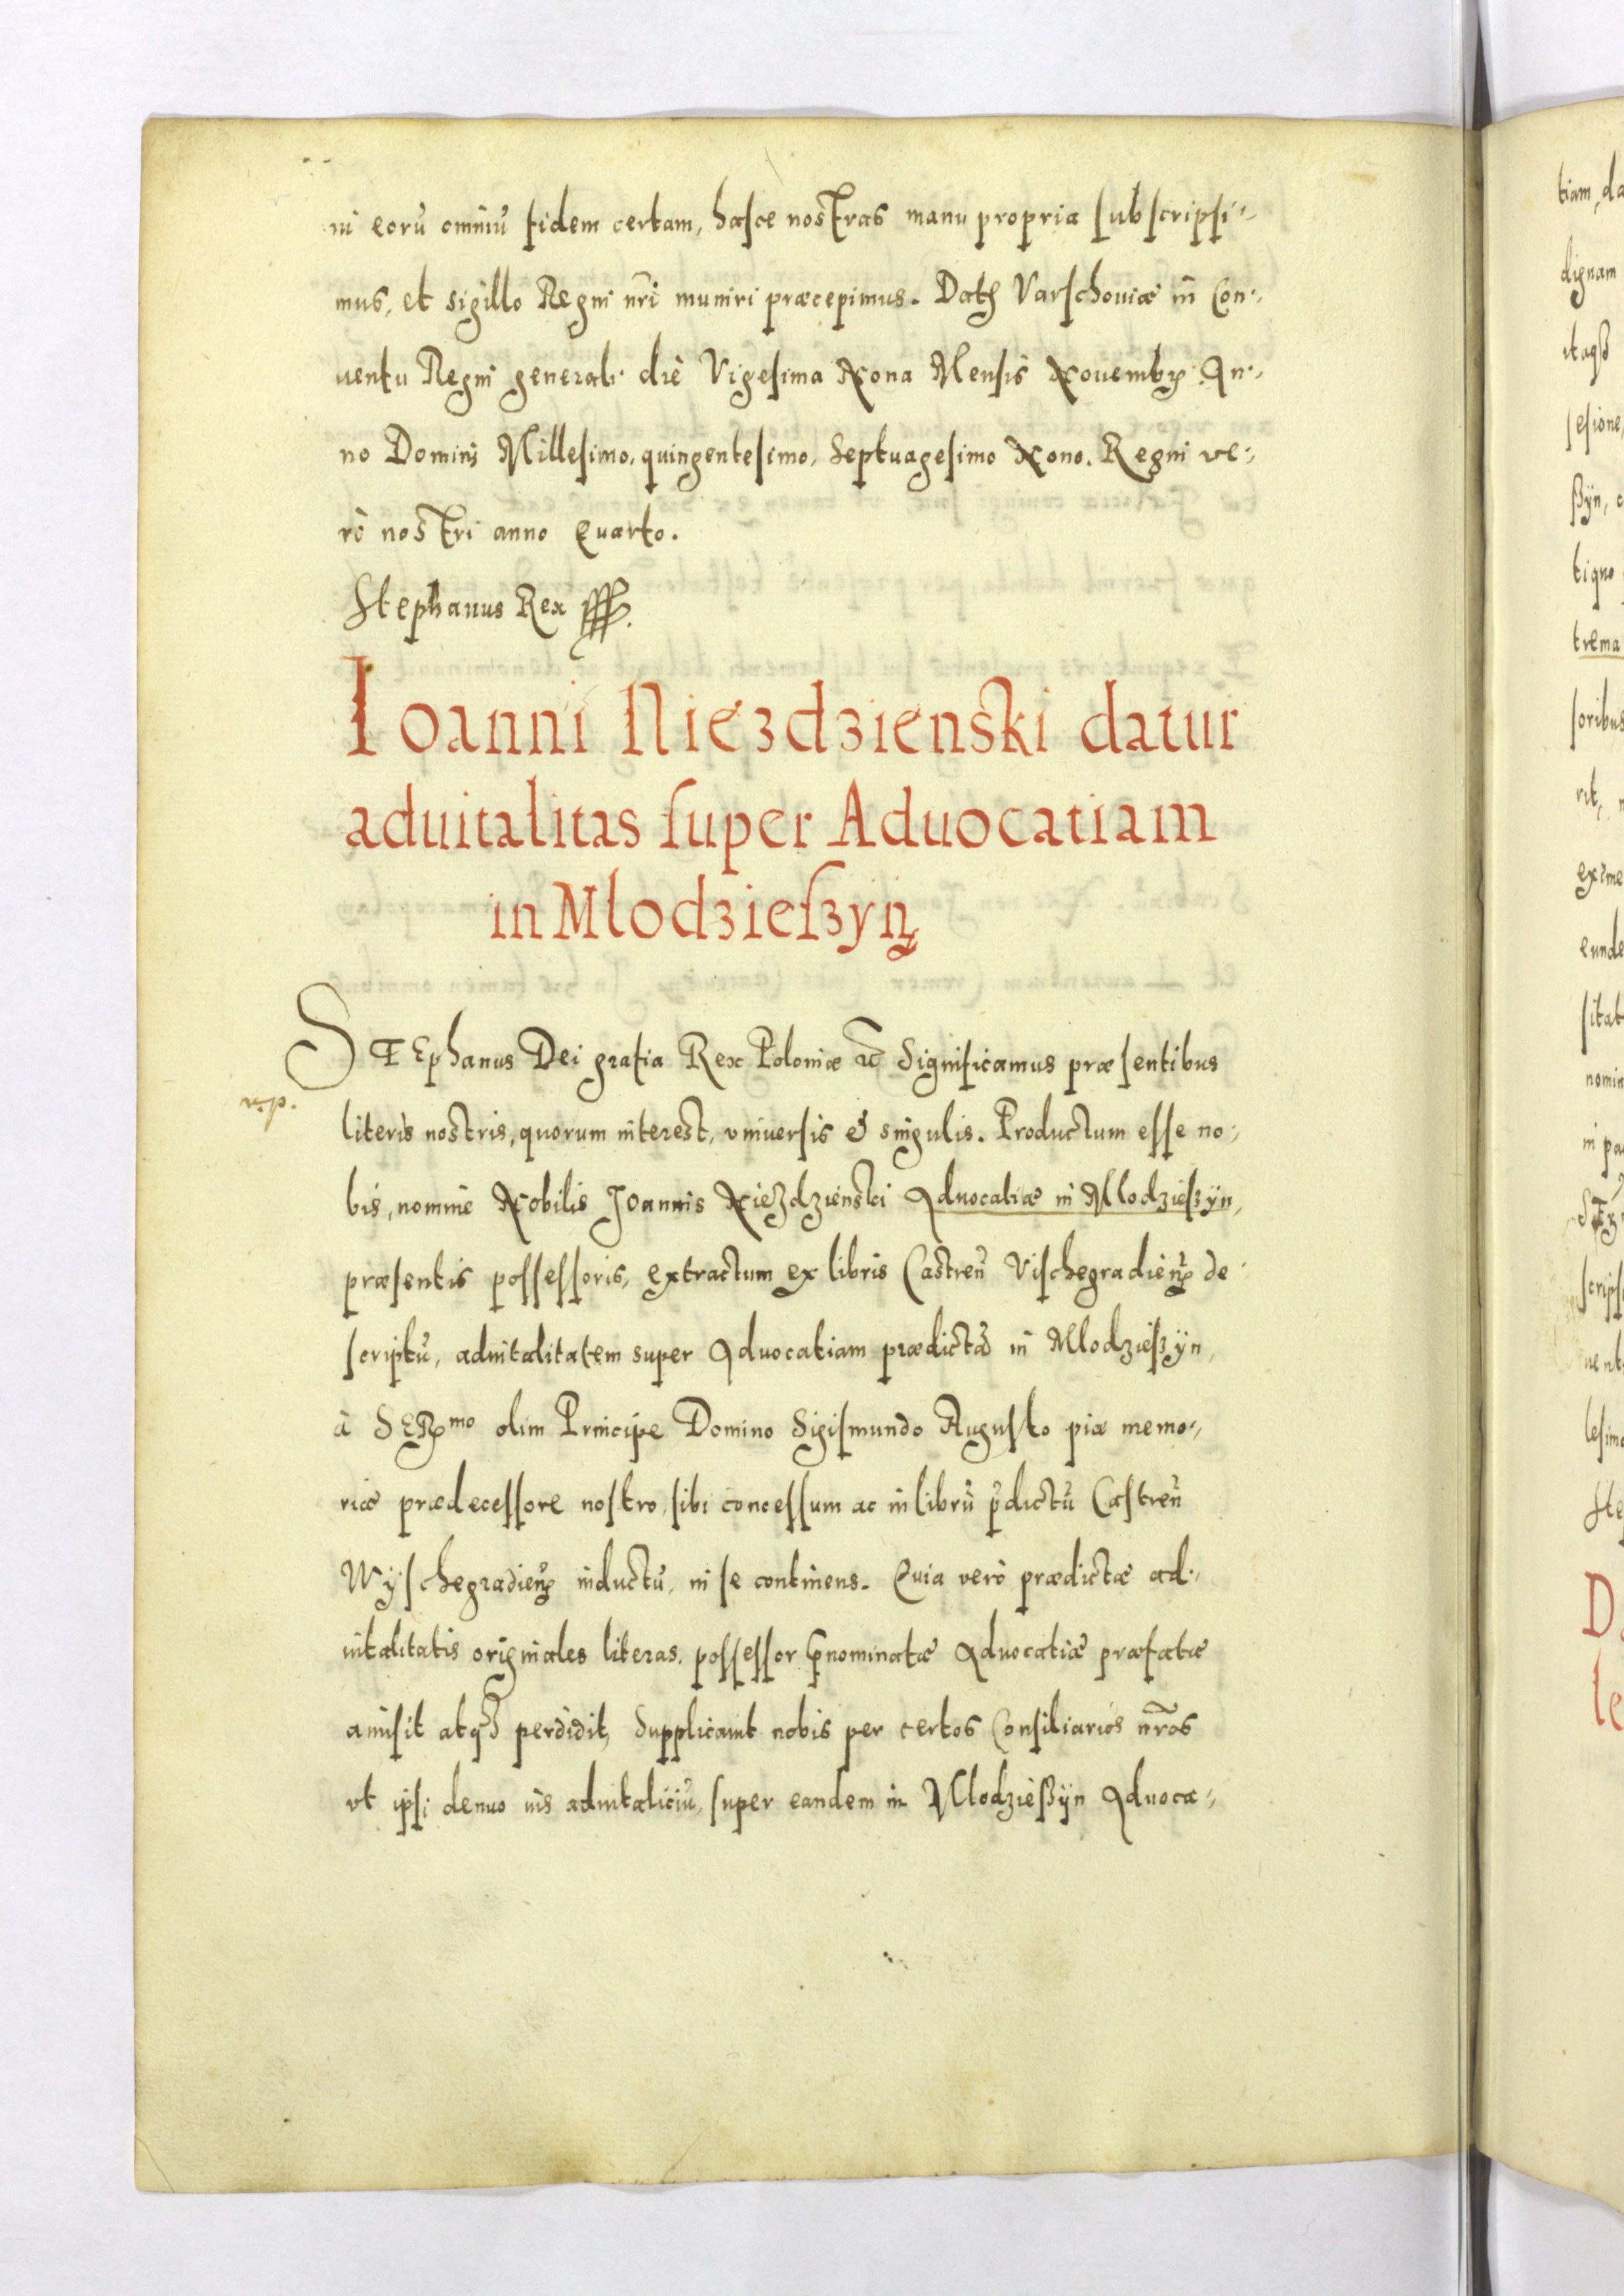 in eorũ omniũ fidem certam, hasce nostras manu propria subscripsi-
mus, et sigillo Regni nr̃i muniri præcepimus. Datꝭ Varschouiæ in Con-
uentu Regni generali die Vigesima Nona Mensis Nouembrꝭ An-
no Domini Millesimo, quingentesimo, Septuagesimo Nono. Regni ve-
rò nostri anno Quarto.
Stephanus Rex
Ioanni Niezdzienski datur
aduitalitas super Aduocatiam
in Mlodzieszyn
STEphanus Dei gratia Rex Poloniæ etc̃ Significamus præsentibus
literis nostris, quorum interest, vniuersis et singulis. Productum esse no-
bis, nomine Nobilis Joannis Niezdzienski Aduocatiæ in Mlodzieszÿn,
præsentis possessoris, extractum ex libris Castreñ Vischegradieñ de-
scriptũ, aduitalitatem super Aduocatiam prædictã in Mlodzieszÿn,
à SERmo olim Principe Domino Sigismundo Augusto piæ memo-
riæ prædecessore nostro, sibi concessum ac in librũ p̃dictũ Castreñ
Wÿschegradieñ inductũ, in se continens. Quia verò prædictæ ad-
uitalitatis originales literas, possessor p̃nominatæ Aduocatiæ præfatæ
amisit atqꝫ perdidit, Supplicauit nobis per certos Consiliarios nr̃os
vt ipsi denuo ius aduitaliciũ, super eandem in Mlodzießÿn Aduoca-